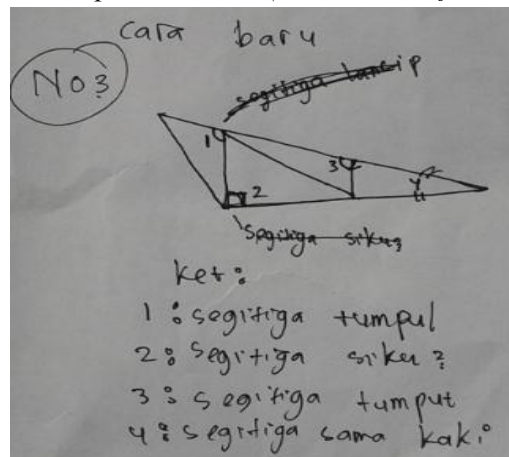 cara baru
No 3
segitiga lancip
1
3
4
2
segitiga siku2
ket:
1: segitiga tumpul
2: segitiga siku 2
3: segitiga tumput
4: segitiga sama kaki